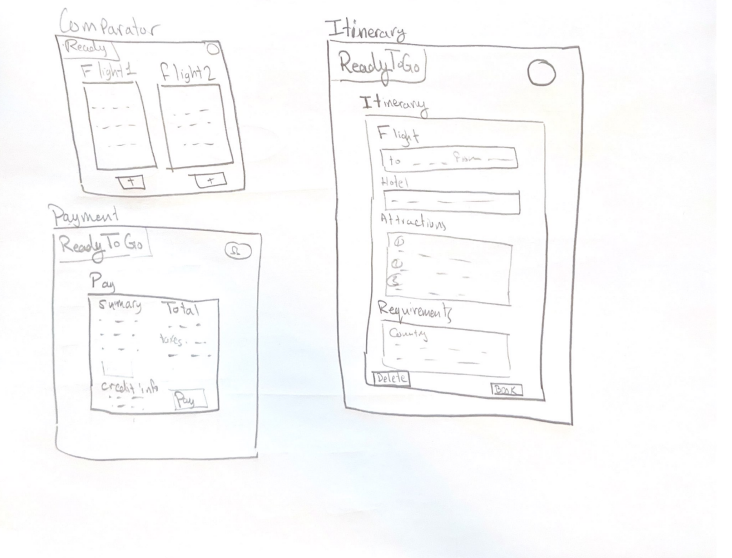 Comparator
Ready
Flight1 Flight2
+ +
Payment
ReadyToGo
Pay
Summary Total
taxes
credit info
Pay
Itinerary
ReadyToGo
Itinerary
Flight
to from
Hotel
Attractions
1
2
3
Requirements
Country
Delete Book